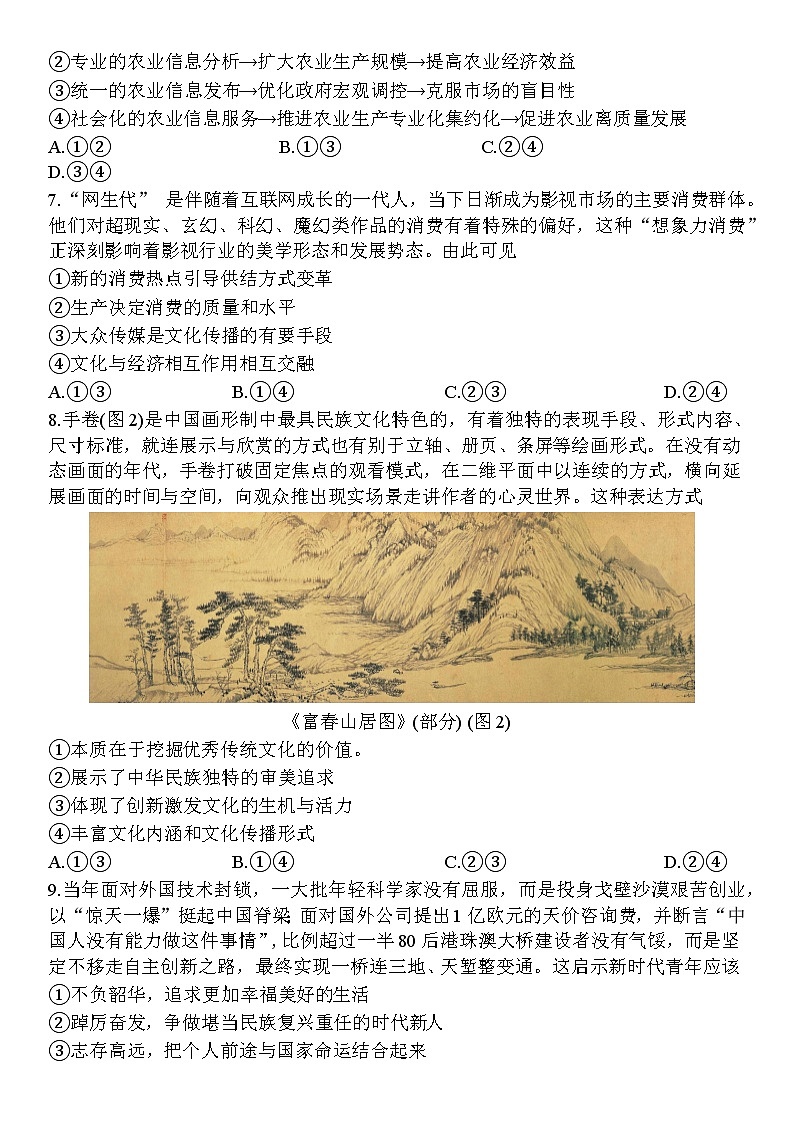 ②专业的农业信息分析→扩大农业生产规模→提高农业经济效益
③统一的农业信息发布→优化政府宏观调控→克服市场的盲目性
④社会化的农业信息服务→推进农业生产专业化集约化→促进农业离质量发展
A.①② B.①③ C.②④
D.③④
7.“网生代” 是伴随着互联网成长的一代人，当下日渐成为影视市场的主要消费群体。
他们对超现实、玄幻、科幻、魔幻类作品的消费有着特殊的偏好，这种“想象力消费”
正深刻影响着影视行业的美学形态和发展势态。由此可见
①新的消费热点引导供结方式变革
②生产决定消费的质量和水平
③大众传媒是文化传播的有要手段
④文化与经济相互作用相互交融
A.①③ B.①④ C.②③ D.②④
8.手卷(图2)是中国画形制中最具民族文化特色的，有着独特的表现手段、形式内容、
尺寸标准，就连展示与欣赏的方式也有别于立轴、册页、条屏等绘画形式。在没有动
态画面的年代，手卷打破固定焦点的观看模式，在二维平面中以连续的方式，横向延
展画面的时间与空间，向观众推出现实场景走讲作者的心灵世界。这种表达方式
《富春山居图》(部分) (图2)
①本质在于挖掘优秀传统文化的价值。
②展示了中华民族独特的审美追求
③体现了创新激发文化的生机与活力
④丰富文化内涵和文化传播形式
A.①③ B.①④ C.②③ D.②④
9.当年面对外国技术封锁，一大批年轻科学家没有屈服，而是投身戈壁沙漠艰苦创业，
以“惊天一爆”挺起中国脊梁; 面对国外公司提出1 亿欧元的天价咨询费，并断言“中
国人没有能力做这件事情”, 比例超过一半80 后港珠澳大桥建设者没有气馁，而是坚
定不移走自主创新之路，最终实现一桥连三地、天堑整变通。这启示新时代青年应该
①不负韶华，追求更加幸福美好的生活
②踔厉奋发，争做堪当民族复兴重任的时代新人
③志存高远，把个人前途与国家命运结合起来